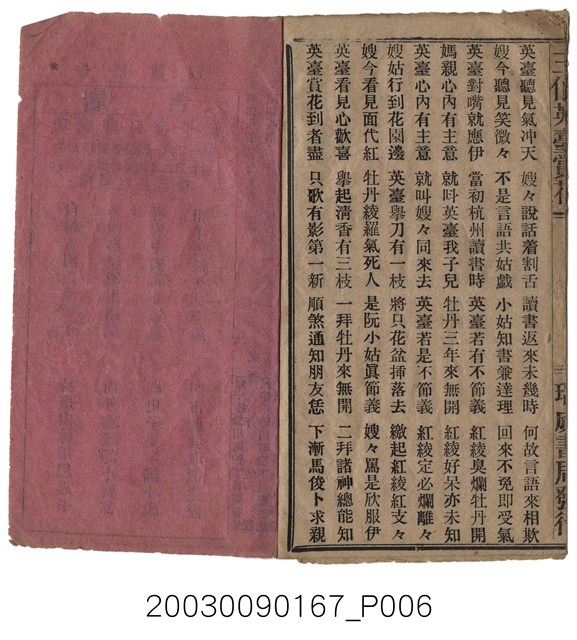 三伯英臺賞花
三
瑞成書局發行
英臺聽見氣冲天 嫂々說話着割舌 讀書返來未幾時 何故言語來相欺
嫂今聽見笑微々 不是言語共姑戲 小姑知書兼達理 回來不免卽受氣
英臺對嘴就應伊 當初杭州讀書時 英臺若有不節義 紅綾臭爛牡丹開
媽親心內有主意 就呌英臺我子兒 牡丹三年來無開 紅綾好呆亦未知
英臺心內有主意 就叫嫂々同來去 英臺若是不節義 紅綾定必爛離々
嫂姑行到花園邊 英臺擧刀有一枝 將只花盆揷落去 繳起紅綾紅支々
嫂今看見面代紅 牡丹綾羅氣死人 是阮小姑眞節義 嫂々罵是欣服伊
英臺看見心歡喜 擧起淸香有三枝 一拜牡丹來無開 二拜諸神總能知
英臺賞花到者盡 只歌有影第一新 順煞通知朋友恁 下漸馬俊卜求親
20030090167_P006